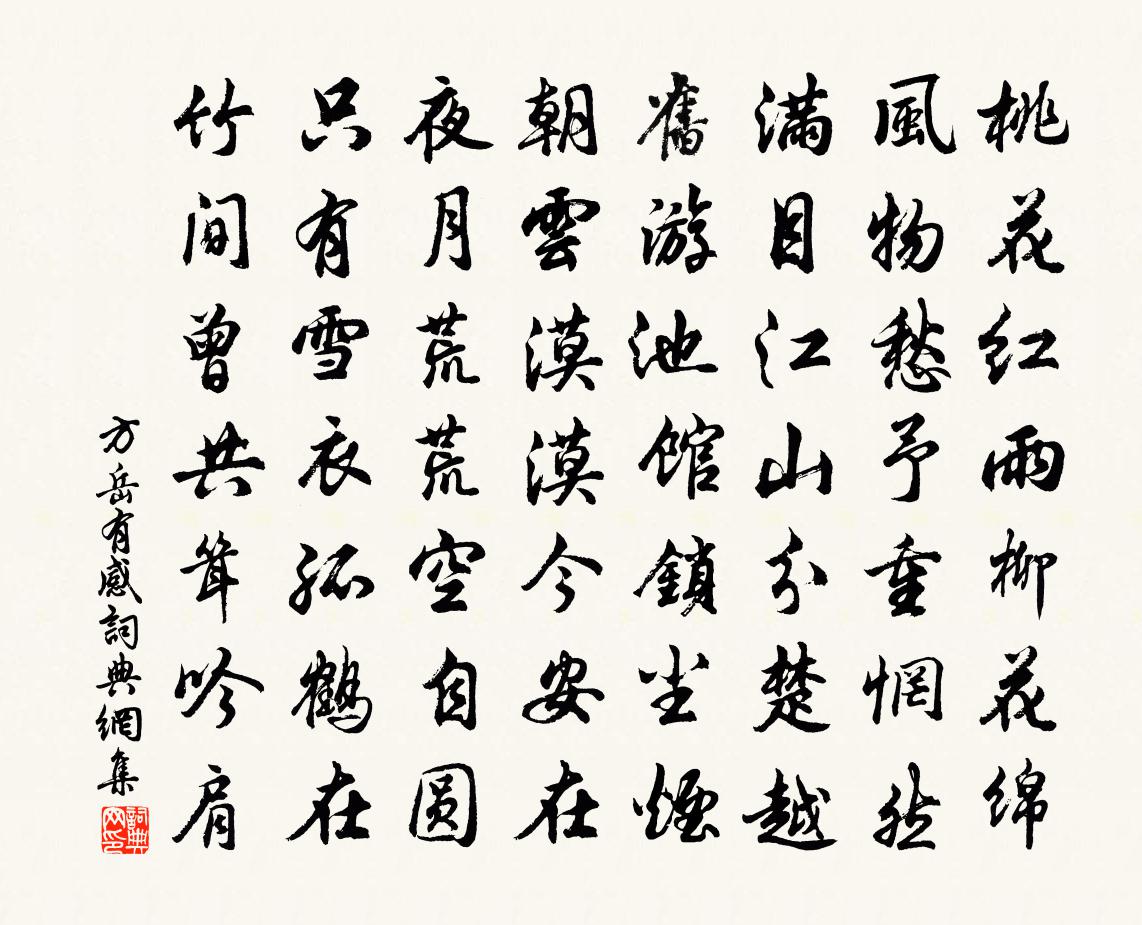 桃花红雨柳花绵
風物愁予重惘然
满目江山分楚越
舊游池馆鎖尘煙
朝雲漠漠今安在
夜月荒荒空自圆
只有雪衣孤鶴在
竹间曾共耸吟肩
方岳有感詞典網集